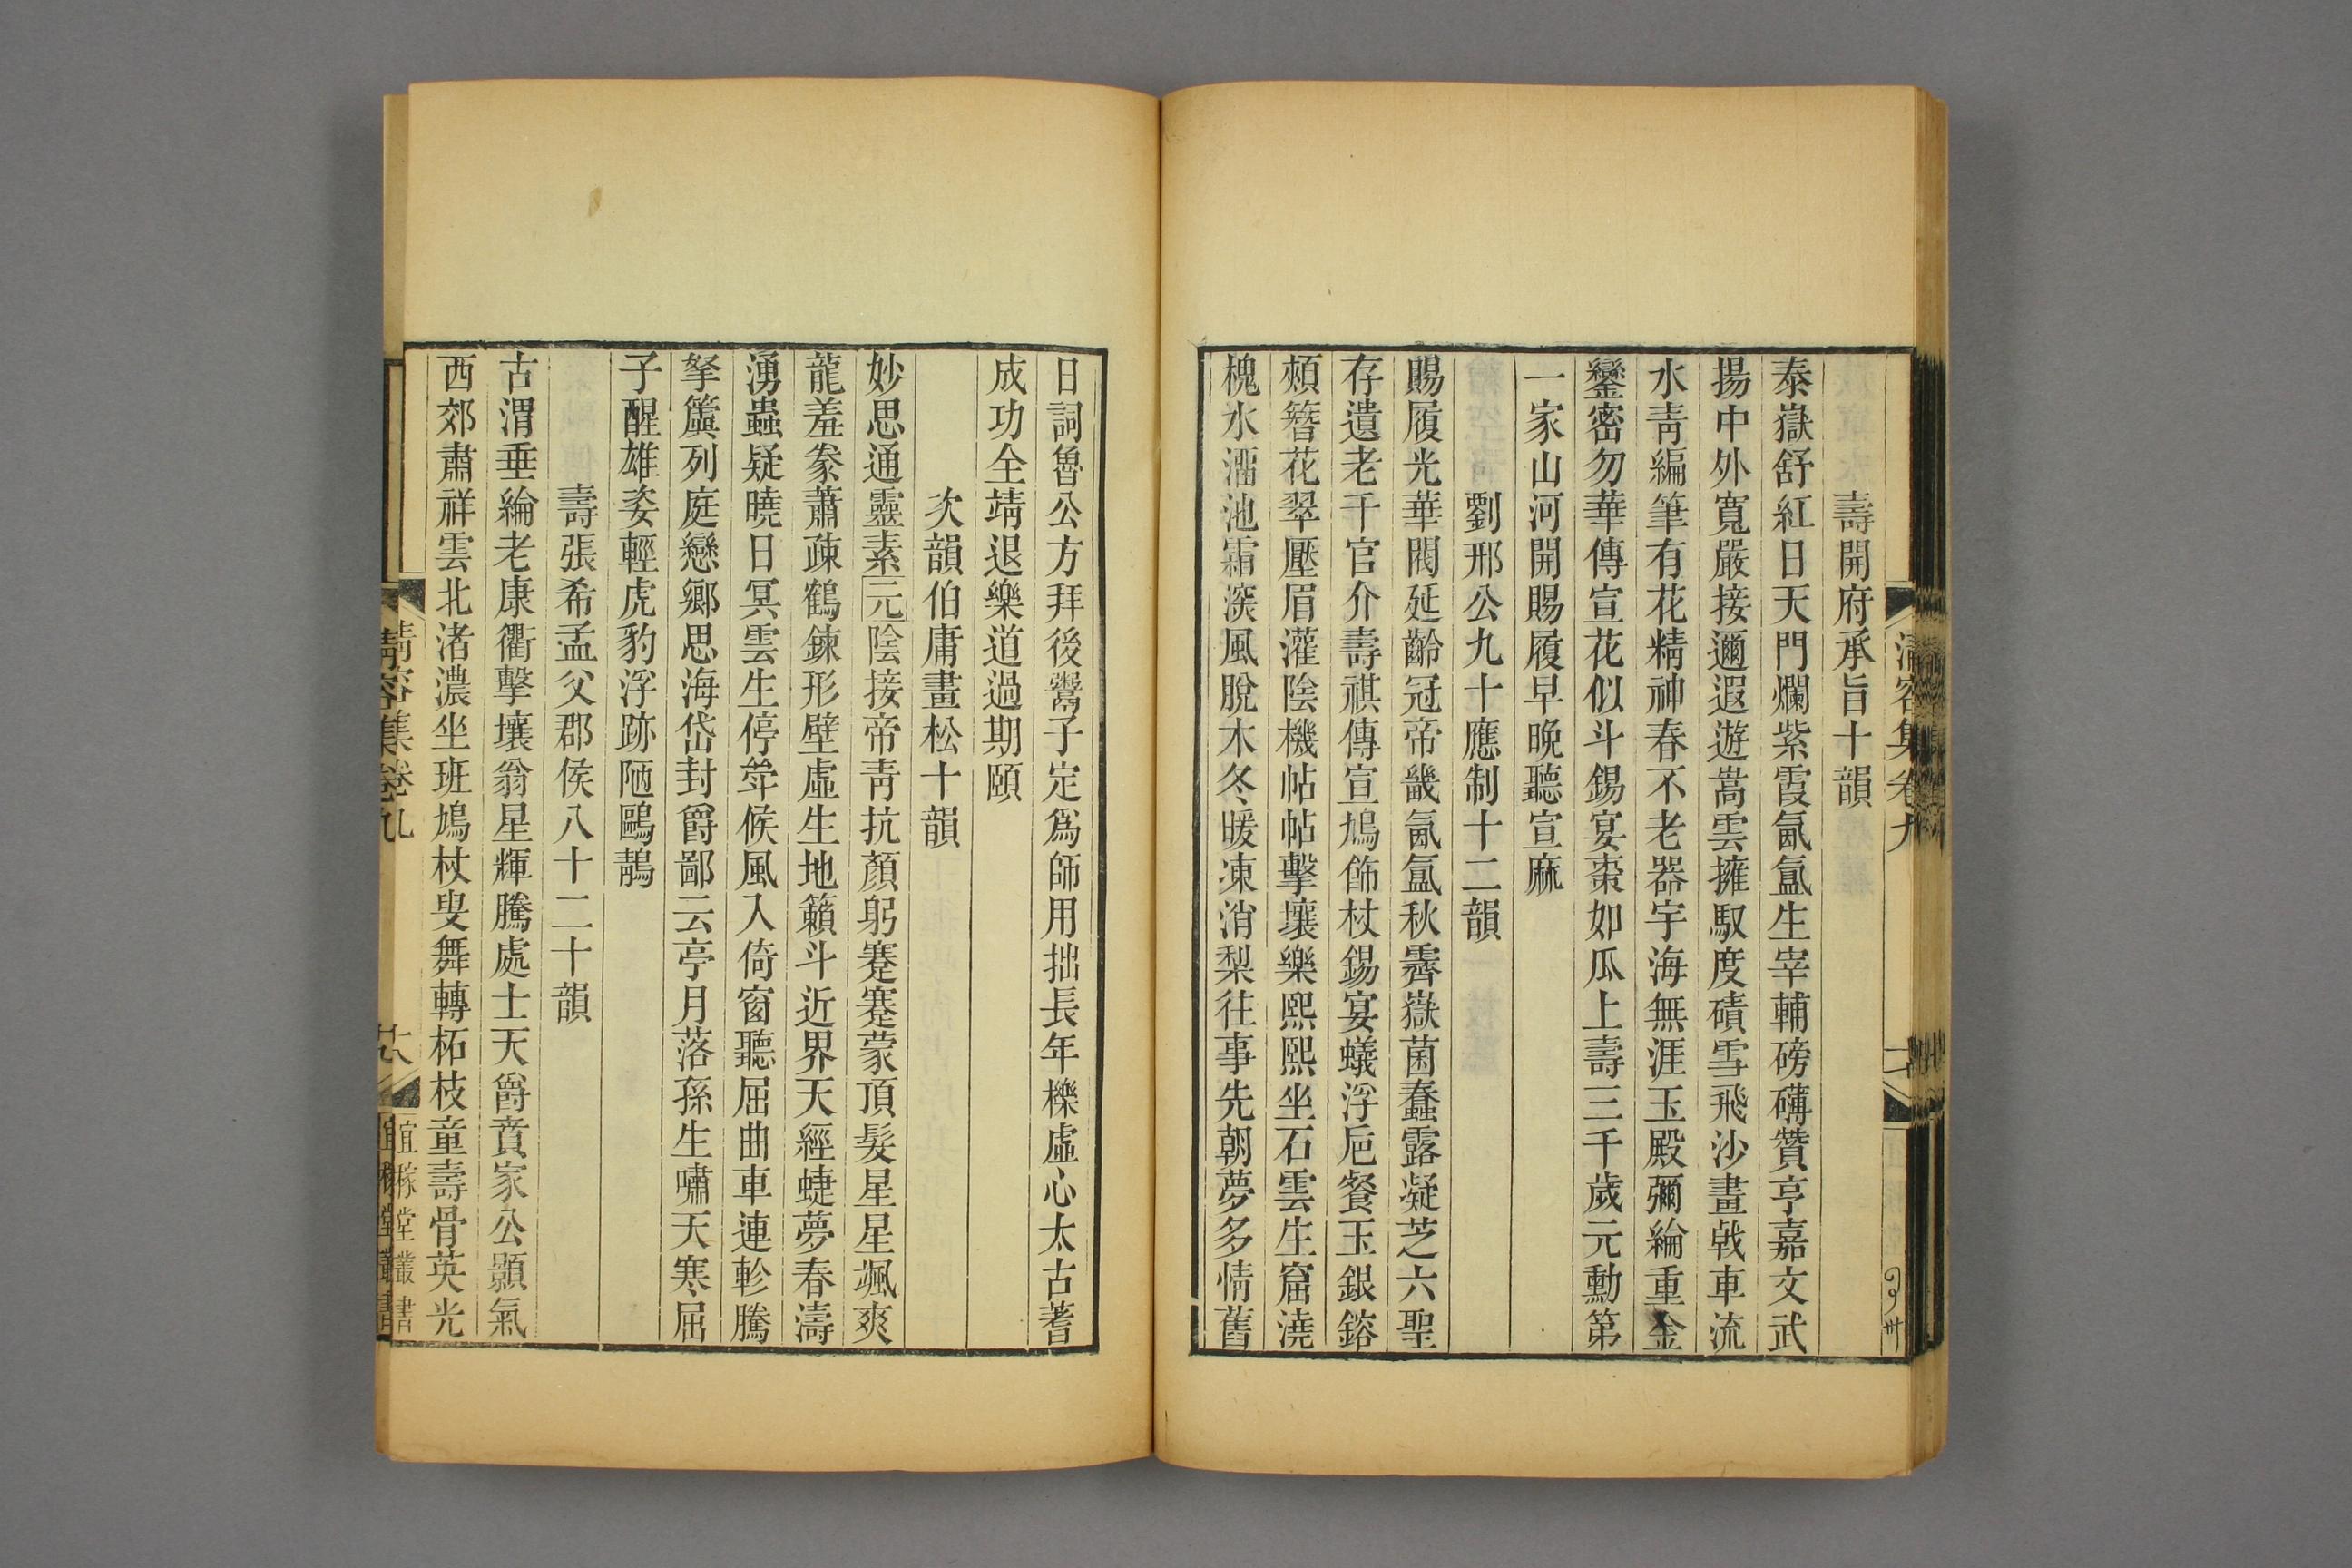 壽開府承旨十韻
泰嶽舒紅日天門爛紫霞氤氳生宰輔磅礴贊亨嘉文武
揚中外寬嚴接邇遐遊嵩雲擁馭度磧雪飛沙畫戟車流
水靑編筆有花精神春不老器宇海無涯玉殿彌綸重金
鑾密勿華傳宣花似斗錫宴棗如瓜上壽三千歲元勳第
一家山河開賜履早晚聽宣麻
劉邢公九十應制十二韻
賜履光華閥延齡冠帝畿氤氳秋霽嶽菌蠢露凝芝六聖
存遺老千官介壽祺傳宣鳩飾杖錫宴蟻浮巵餐玉銀鎔
頰簪花翠壓眉灌陰機帖帖擊壤樂熙熙坐石雲生窟澆
槐水滿池霜深風脫木冬暖凍消梨往事先朝夢多情舊
日詞魯公方拜後鬻子定爲師用拙長年櫟虛心太古蓍
成功全靖退樂道過期頤
次韻伯庸畫松十韻
妙思通靈素元陰接帝靑抗顏躬蹇蹇蒙頂髮星星颯爽
龍羞豢蕭疎鶴鍊形壁虛生地籟斗近界天經蜨夢春濤
湧蟲疑曉日冥雲生停犖候風入倚窗聽屈曲車連軫騰
拏簴列庭戀鄉思海岱封爵鄙云亭月落孫生嘯天寒屈
子醒雄姿輕虎豹浮跡陋鷗鶄
壽張希孟父郡侯八十二十韻
古渭垂綸老康衢擊壤翁星輝騰處士天爵賁家公顥氣
西郊肅祥雲北渚濃坐班鳩杖叟舞轉柘枝童壽骨英光
清容集卷九
宜稼堂叢書